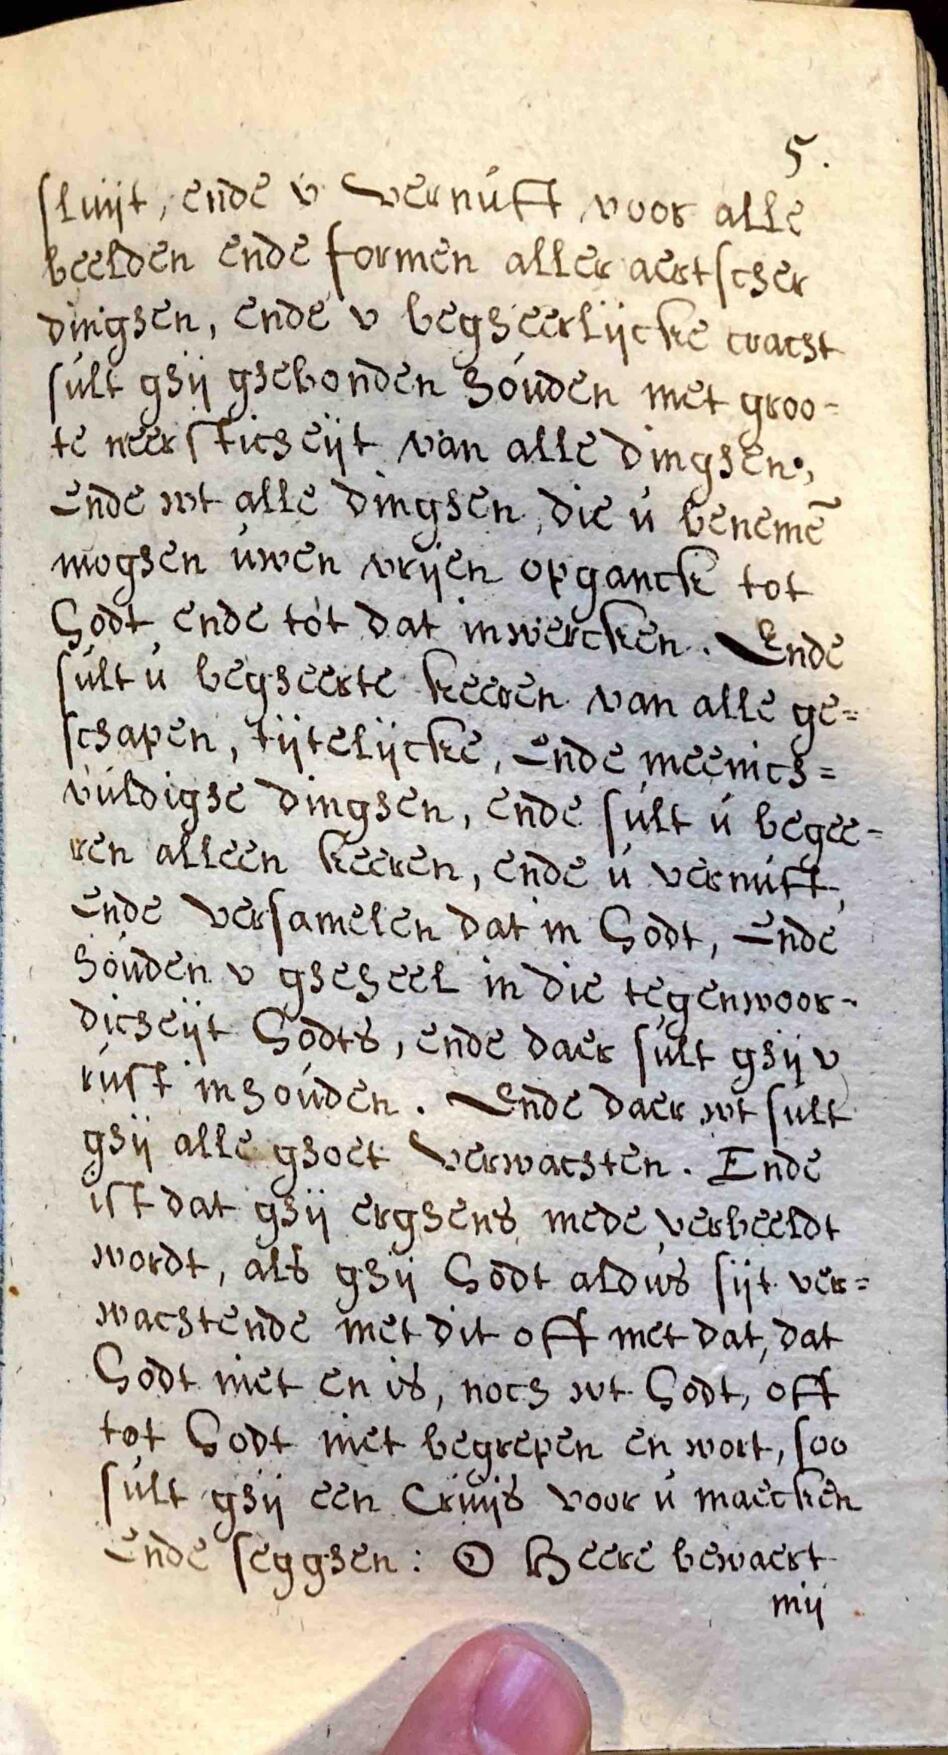 5.
sluijt, ende v vernúfft voor alle
beelden ende formen aller aertscher
dinghen, ende v begheerlijcke cracht
súlt ghij ghebonden hóuden met groo=
te neersticheijt van alle dinghen,
Ende wt alle dinghen, die ú benemē
moghen úwen vrijen opganck tot
Godt ende tot dat inwercken. Ende
súlt ú begheerte keeren van alle ge=
schapen, tijtelijcke, Ende meenich=
vúldighe dinghen, ende súlt ú begee=
ren alleen keeren, ende ú vernúfft,
Ende versamelen dat in Godt, Ende
hóuden v gheheel in die tegenwoor-
dicheijt Godts, ende daer súlt ghij v
rúst inhóuden. Ende daer wt sult
ghij alle ghoet verwachten. Ende
ist dat ghij erghens mede verbeeldt
wordt, als ghij Godt aldus sijt ver=
wachtende met dit off met dat, dat
Godt niet en is, noch wt Godt, off
tot Godt niet begrepen en wort, soo
súlt ghij een Crúijs voor ú maecken
Ende segghen: O Heere bewaert
mij